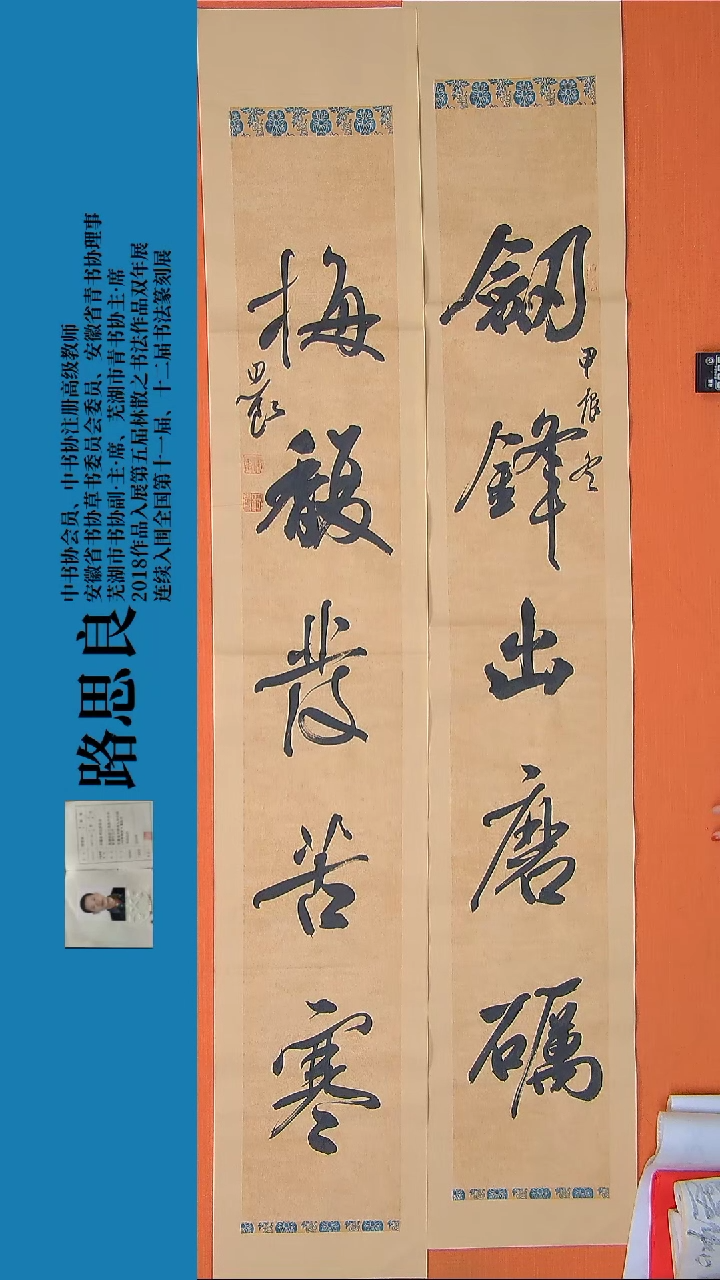 劔鋒出磨礪
甲辰冬
梅馥發苦寒
思良
路思良
中书协会员、中书协注册高级教师
安徽省书协草书委员会委员、安徽省青书协理事
芜湖市书协副·主·席、芜湖市青书协主·席
2018作品入展第五届林散之书法作品双年展
连续入围全国第十一届、十二届书法篆刻展